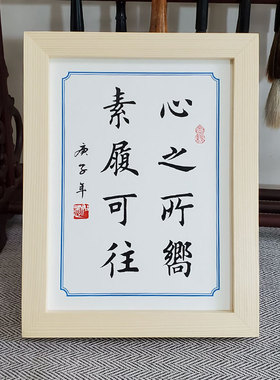 心之所嚮
素履可往
庚子年